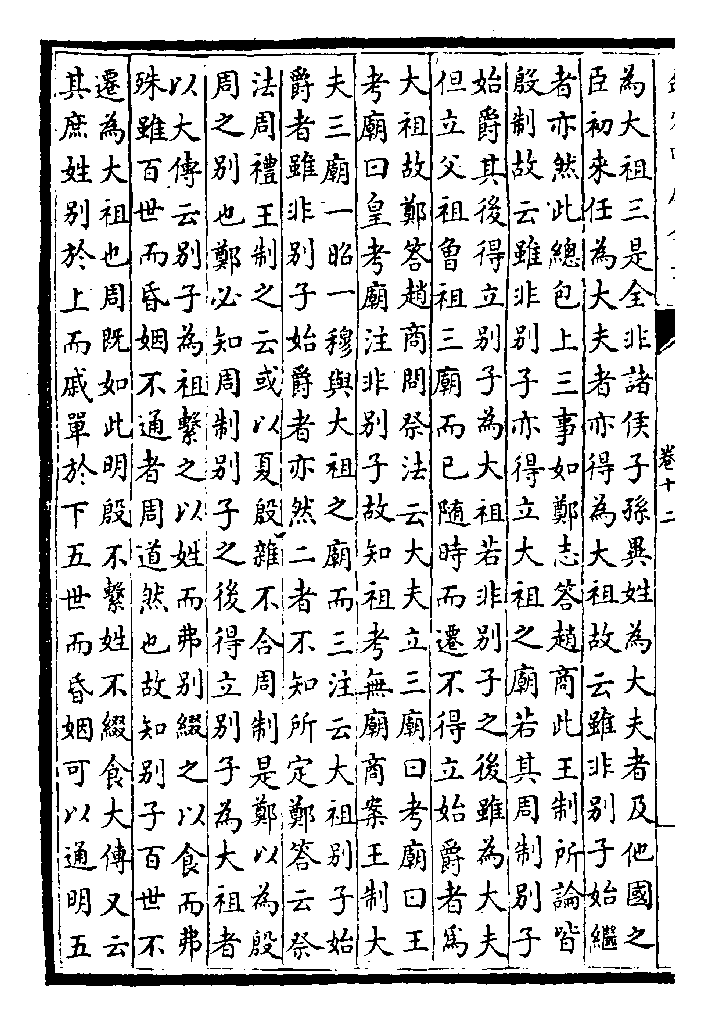 卷十二
為大祖三是全非諸侯子孫異姓為大夫者及他國之
臣初來任為大夫者亦得為大祖故云雖非別子始繼
者亦然此總包上三事如鄭志答趙商此王制所論皆
殷制故云雖非別子亦得立大祖之廟若其周制別子
始爵其後得立別子為大祖若非別子之後雖為大夫
但立父祖曾祖三廟而已隨時而遷不得立始爵者為
大祖故鄭答趙商問祭法云大夫立三廟曰考廟曰王
考廟曰皇考廟注非別子故知祖考無廟商案王制大
夫三廟一昭一穆與大祖之廟而三注云大祖別子始
爵者雖非別子始爵者亦然二者不知所定鄭答云祭
法周禮王制之云或以夏殷雜不合周制是鄭以為殷
周之別也鄭必知周制別子之後得立別子為大祖者
以大傳云別子為祖繫之以姓而弗別綴之以食而弗
殊雖百世而昏姻不通者周道然也故知別子百世不
遷為大祖也周既如此明殷不繫姓不綴食大傳又云
其庶姓別於上而戚單於下五世而昏姻可以通明五